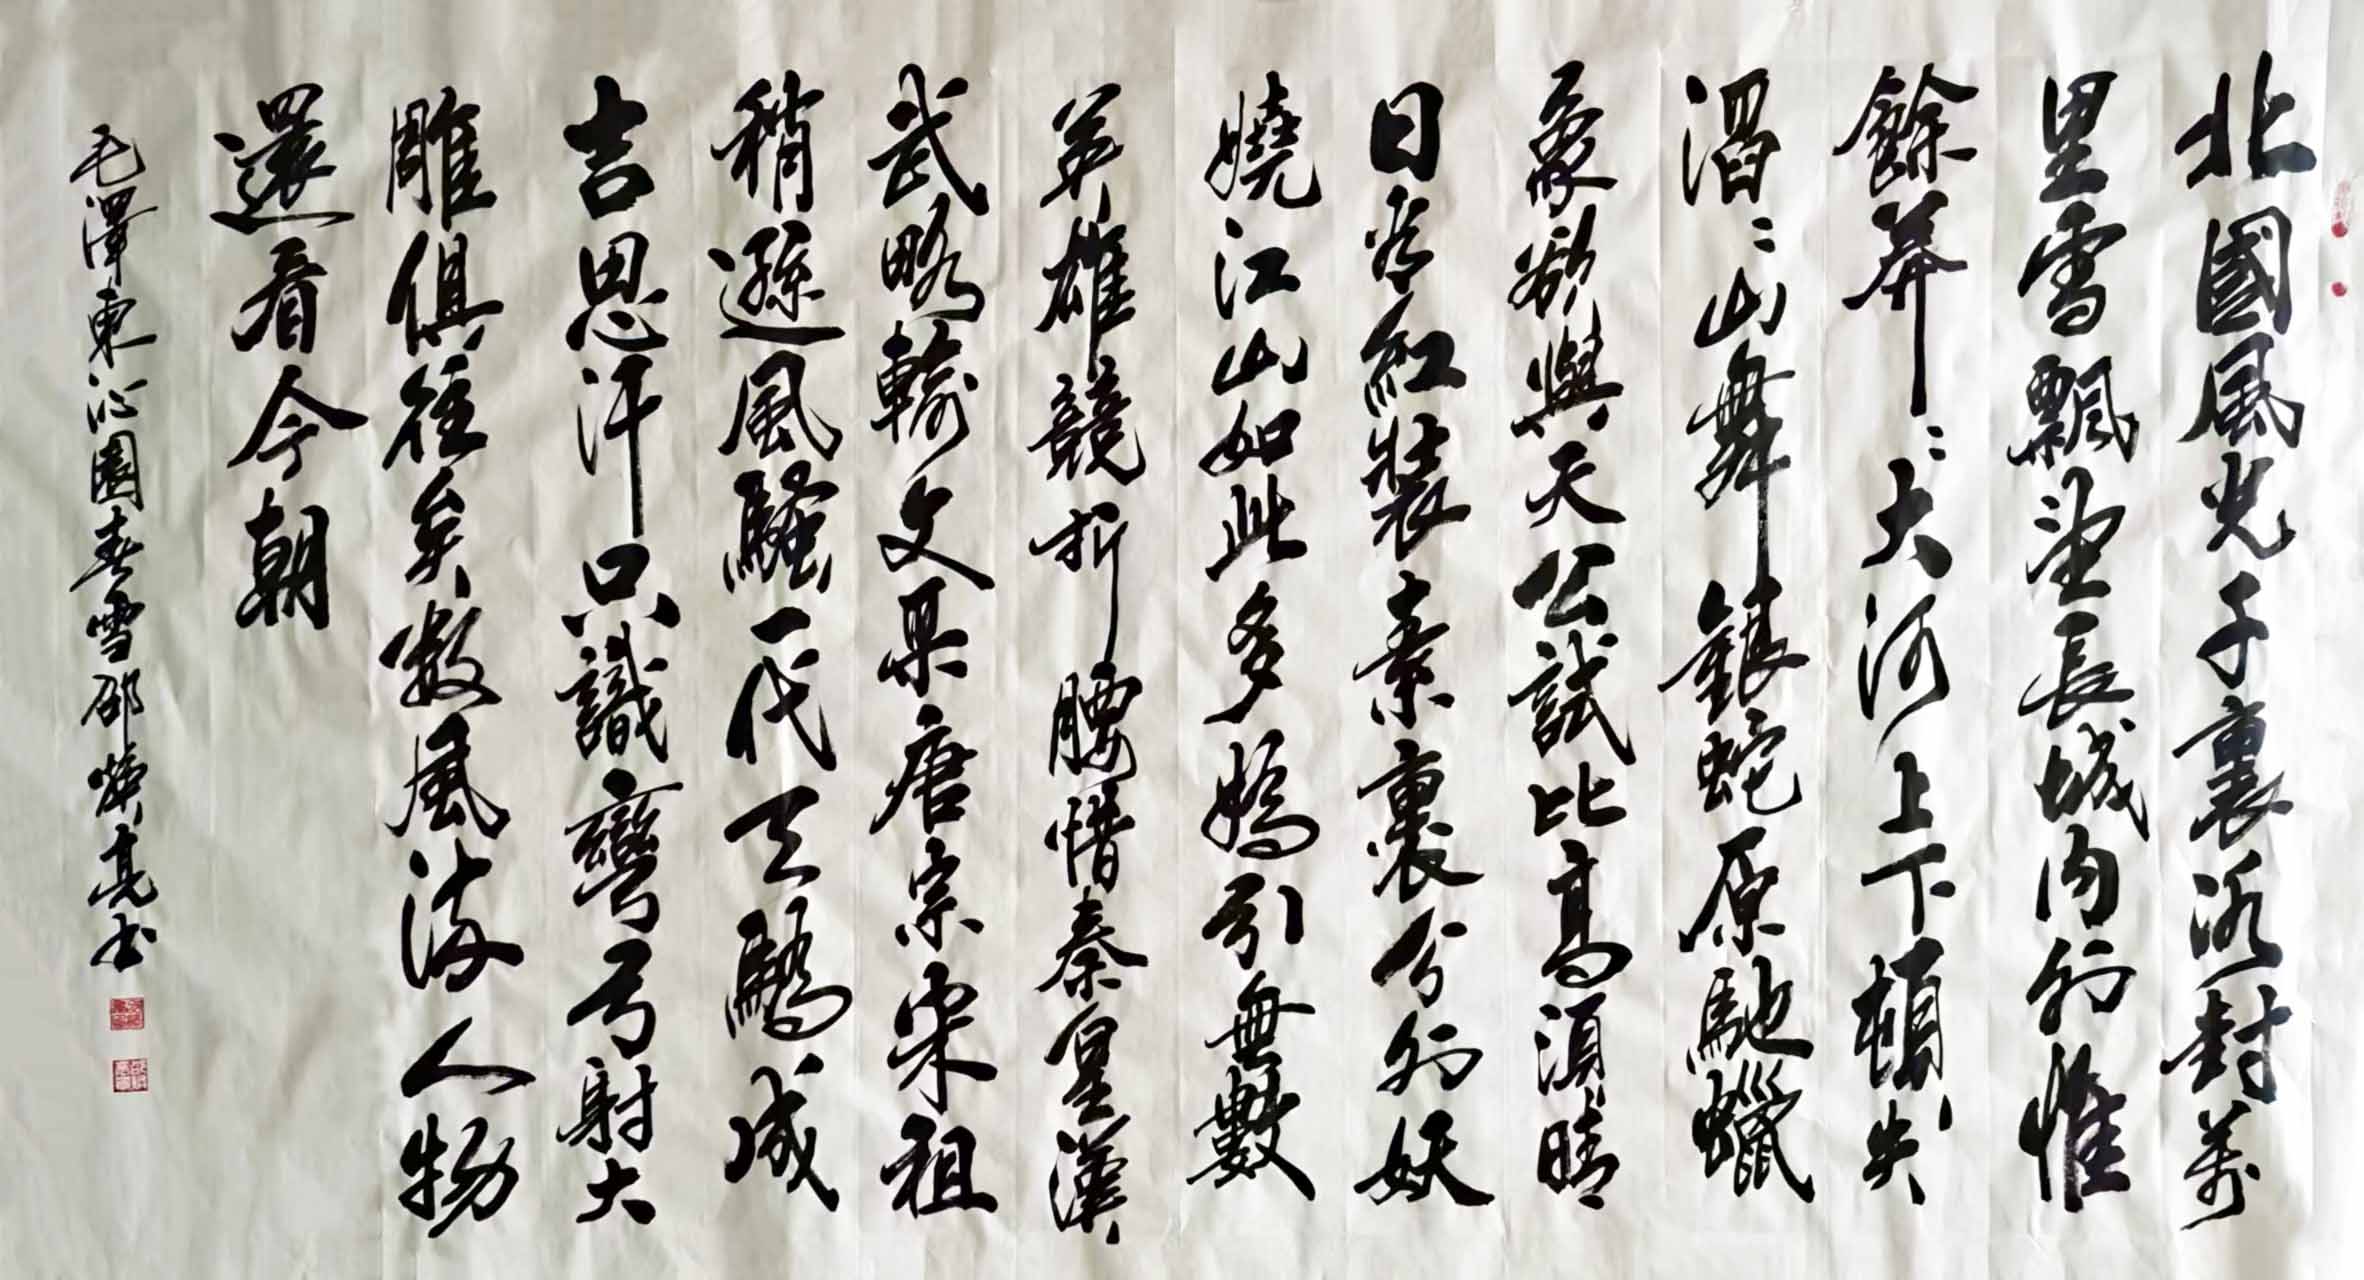 北國風光千裏冰封萬
里雪飄望長城內外惟
餘莽〻大河上下頓失
滔〻山舞銀蛇原馳蠟
象欲與天公試比高須晴
日看紅裝素裹分外妖
嬈江山如此多嬌引無數
英雄競折腰惜秦皇漢
武略輸文采唐宗宋祖
稍遜風騷一代天驕成
吉思汗只識彎弓射大
雕俱往矣數風流人物
還看今朝
毛澤東沁園春雪邵亮书